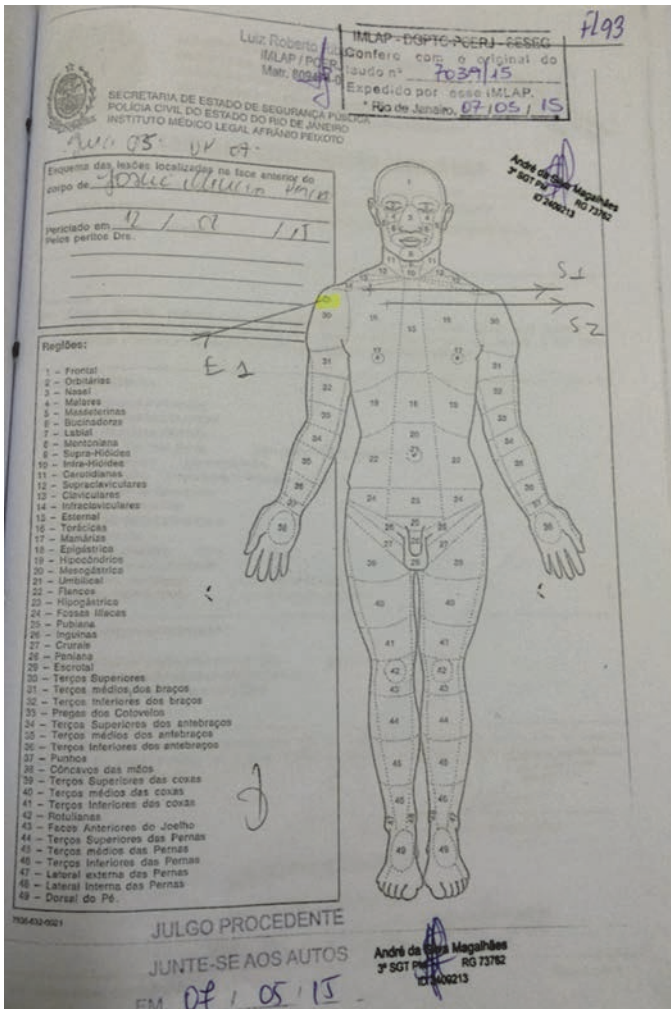 fl 93
Luiz Roberto
IMLAP / PCERJ
Matr.
IMLAP - DGPTC-PCERJ - SESEG
Confere com o original do
laudo nº 7039/15
Expedido por esse IMLAP.
Rio de Janeiro, 07/05/15
SECRETARIA DE ESTADO DE SEGURANÇA PÚBLICA
POLÍCIA CIVIL DO ESTADO DO RIO DE JANEIRO
INSTITUTO MÉDICO LEGAL AFRÂNIO PEIXOTO
André da Silva Magalhães
3º SGT PM RG 73762
ID 2409213
Esquema das lesões localizadas na face anterior do
corpo de
Periciado em
Pelos peritos Drs.
S1
S2
E 1
Regiões:
1 - Frontal
2 - Orbitárias
3 - Nasal
4 - Malares
5 - Masseterinas
6 - Bucinadoras
7 - Labial
8 - Mentoniana
9 - Supra-Hióides
10 - Infra-Hióides
11 - Carotidianas
12 - Supraclaviculares
13 - Claviculares
14 - Infraclaviculares
15 - Esternal
16 - Torácicas
17 - Mamárias
18 - Epigástrica
19 - Hipocôndrios
20 - Mesogástrica
21 - Umbilical
22 - Flancos
23 - Hipogástrica
24 - Fossas Ilíacas
25 - Pubiana
26 - Inguinas
27 - Crurais
28 - Peniana
29 - Escrotal
30 - Terços Superiores
31 - Terços médios dos braços
32 - Terços Inferiores dos braços
33 - Pregas dos Cotovelos
34 - Terços Superiores dos antebraços
35 - Terços médios dos antebraços
36 - Terços Inferiores dos antebraços
37 - Punhos
38 - Côncavos das mãos
39 - Terços Superiores das coxas
40 - Terços médios das coxas
41 - Terços Inferiores das coxas
42 - Rotulianas
43 - Faces Anteriores do Joelho
44 - Terços Superiores das Pernas
45 - Terços médios das Pernas
46 - Terços Inferiores das Pernas
47 - Lateral externa das Pernas
48 - Lateral Interna das Pernas
49 - Dorsal do Pé.
JULGO PROCEDENTE
JUNTE-SE AOS AUTOS
EM 07 / 05 / 15
André da Silva Magalhães
3º SGT PM RG 73762
ID 2409213